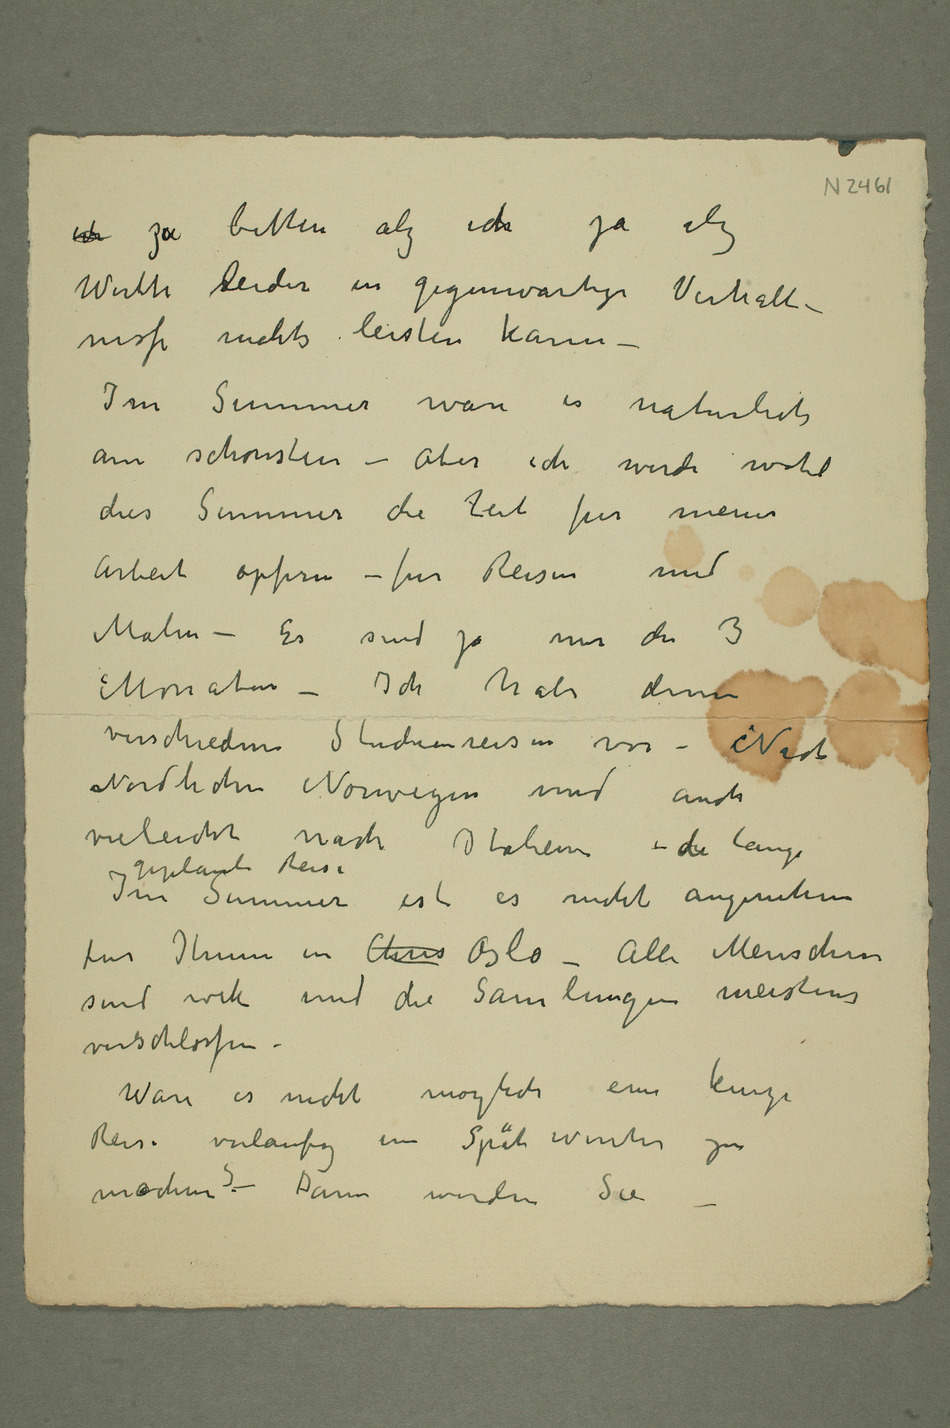 N 2461
ich zu bitten als ich ja als
Werth leider in gegenwärtige Verhält-
nisse nichts leisten kann –
Im Summer ware es naturlich
am schonsten – aber ich werde wohl
dies Summer die Zeit fur meine
Arbeit opfern – fur Reisen und
Malen – Es sind ja nur die 3
Monaten – Ich habe denn
verschiedene Studienreisen vor – Nach
Nordlichen Norwegen und auch
vieleicht nach Italien – die lange
geplante Reise
Im Summer ist es nicht angenehm
fur Ihnen in Chris Oslo – Alle Menschen
sind wek und die Samlungen meistens
verschlossen –
Ware es nicht moglich eine kurze
Reise vorlaufig im Spät winter zu
machen? – Dann werden Sie –